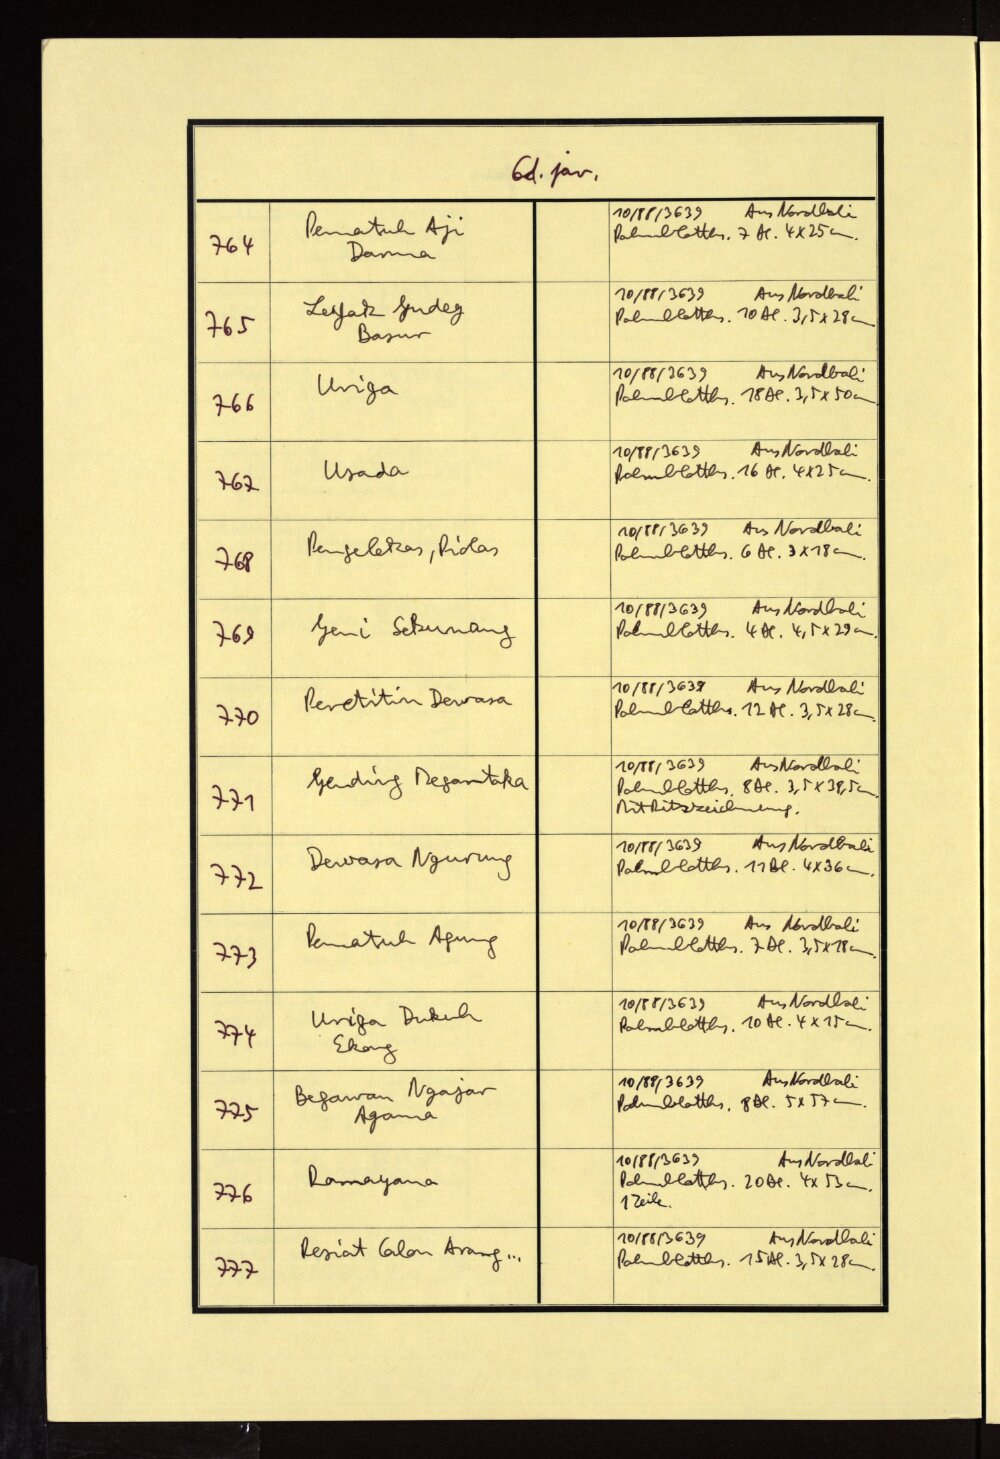 Cod. jav.
764 Pematuh Aji 10/88/3639 Aus Nordbali
Darma Palmblatths. 7 Bl. 4x25 cm.
765 10/88/3639 Aus Nordbali
Basur Palmblatths. 10 Bl. 3,5x28 cm.
766 Uriga 10/88/3639 Aus Nordbali
Palmblatths. 18 Bl. 3,5x50 cm.
767 Usada 10/88/3639 Aus Nordbali
Palmblatths. 16 Bl. 4x25 cm.
768 Pengelekas, 10/88/3639 Aus Nordbali
Palmblatths. 6 Bl. 3x18 cm.
769 Geni 10/88/3639 Aus Nordbali
Palmblatths. 4 Bl. 4,5x29 cm.
770 Dewasa 10/88/3639 Aus Nordbali
Palmblatths. 12 Bl. 3,5x28 cm.
771 Gending 10/88/3639 Aus Nordbali
Palmblatths. 8 Bl. 3,5x38,5 cm.
Mit Ritzzeichnung.
772 Dewasa Ngurung 10/88/3639 Aus Nordbali
Palmblatths. 11 Bl. 4x36 cm.
773 Pematuh Agung 10/88/3639 Aus Nordbali
Palmblatths. 7 Bl. 3,5x18 cm.
774 Uriga Dukuh 10/88/3639 Aus Nordbali
Ekang Palmblatths. 10 Bl. 4x15 cm.
775 Begawan Ngajar 10/88/3639 Aus Nordbali
Agama Palmblatths. 8 Bl. 5x57 cm.
776 Ramayana 10/88/3639 Aus Nordbali
Palmblatths. 20 Bl. 4x53 cm.
1 Zeile.
777 Calon Arang... 10/88/3639 Aus Nordbali
Palmblatths. 15 Bl. 3,5x28 cm.